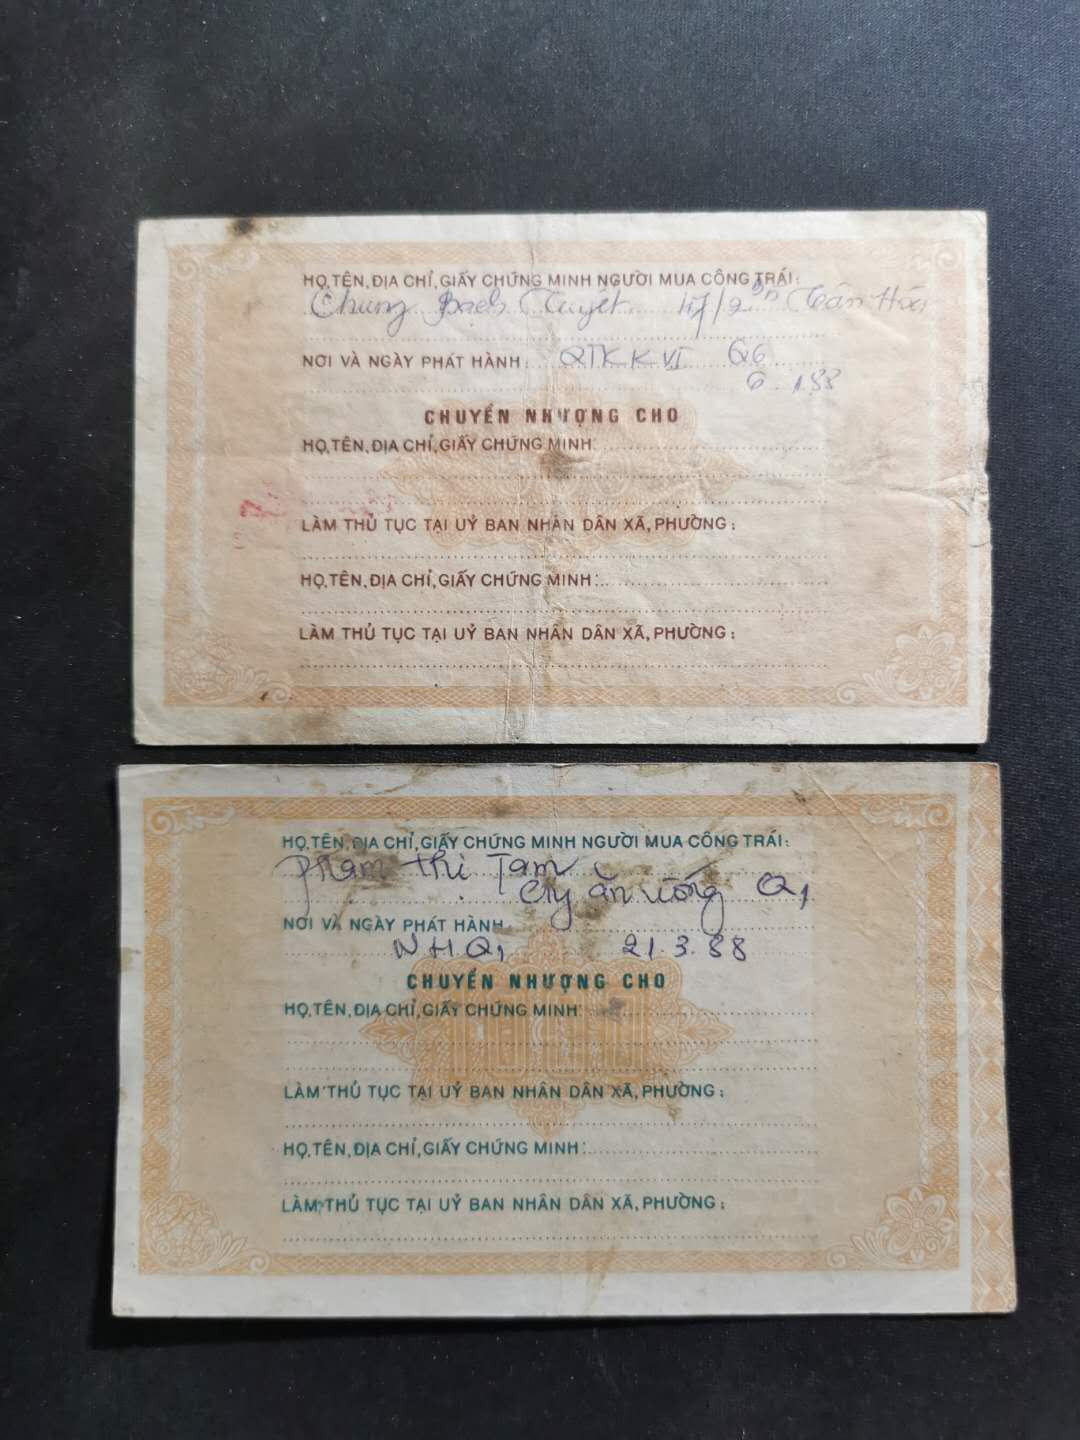 HỌ, TÊN, ĐỊA CHỈ, GIẤY CHỨNG MINH NGƯỜI MUA CÔNG TRÁI:
Chung Bạch Tuyết 117/2 Tân Hóa
NƠI VÀ NGÀY PHÁT HÀNH: QTK K VI Q6
6 1 88
CHUYỂN NHƯỢNG CHO
HỌ, TÊN, ĐỊA CHỈ, GIẤY CHỨNG MINH:
LÀM THỦ TỤC TẠI UỶ BAN NHÂN DÂN XÃ, PHƯỜNG:
HỌ, TÊN, ĐỊA CHỈ, GIẤY CHỨNG MINH:
LÀM THỦ TỤC TẠI UỶ BAN NHÂN DÂN XÃ, PHƯỜNG:
HỌ, TÊN, ĐỊA CHỈ, GIẤY CHỨNG MINH NGƯỜI MUA CÔNG TRÁI:
Phạm thị Tam
Cty ăn uống Q1
NƠI VÀ NGÀY PHÁT HÀNH
NHQ1 21.3.88
CHUYỂN NHƯỢNG CHO
HỌ, TÊN, ĐỊA CHỈ, GIẤY CHỨNG MINH:
LÀM THỦ TỤC TẠI UỶ BAN NHÂN DÂN XÃ, PHƯỜNG:
HỌ, TÊN, ĐỊA CHỈ, GIẤY CHỨNG MINH:
LÀM THỦ TỤC TẠI UỶ BAN NHÂN DÂN XÃ, PHƯỜNG: